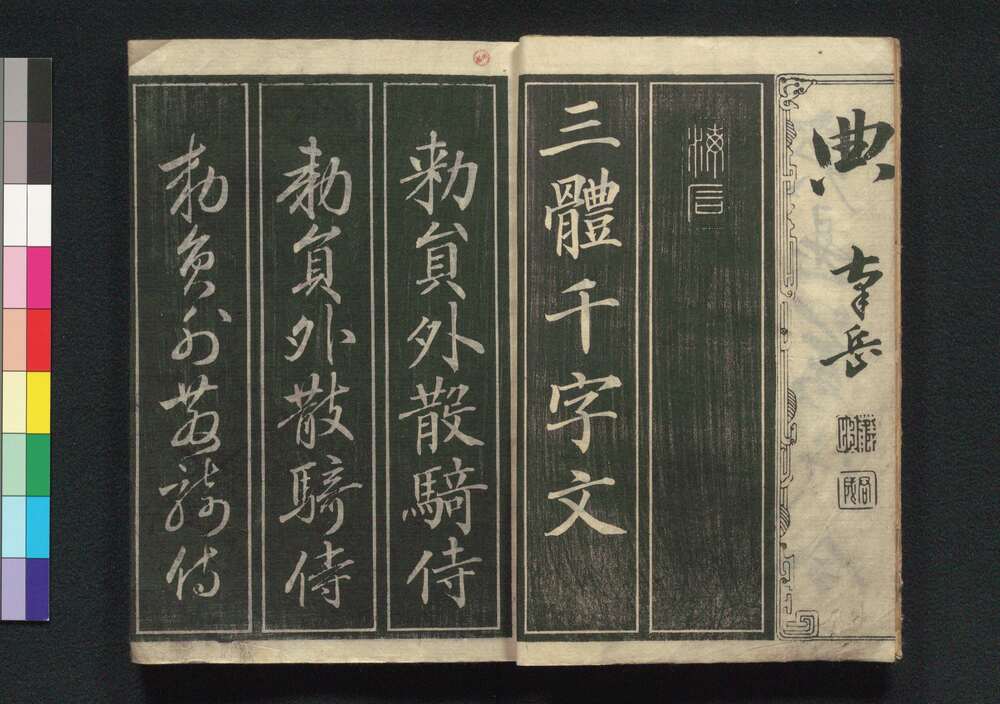 典
南岳
三體千字文
勅貟外散騎侍
勅貟外散騎侍
勅貟外散騎侍